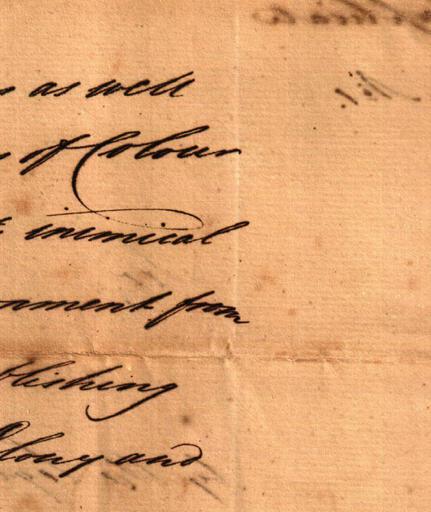 as well
of Colour
inimical
nament from
blishing
olony and